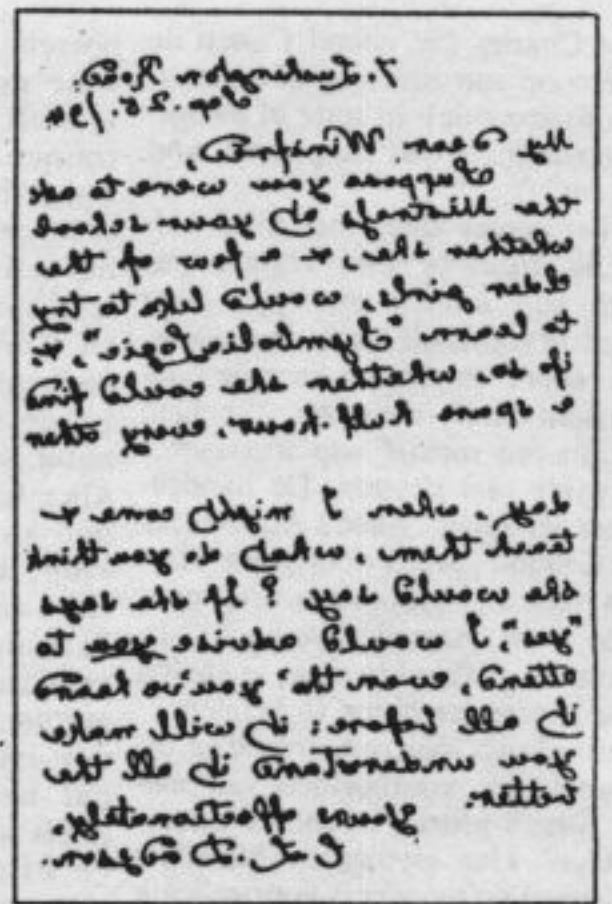 7. Lushington Road.
Sep. 25. /94
My dear Winifred,
Suppose you were to ask
the Mistress of your school
whether she, & a few of the
elder girls, would like to try
to learn "Symbolic Logic", &,
if so, whether she could find
a spare half-hour, every other
day, when I might come &
teach them, what do you think
she would say? If she says
"yes", I would advise you to
attend, even tho' you've heard
it all before: it will make
you understand it all the
better. Yours affectionately,
C. L. Dodgson.